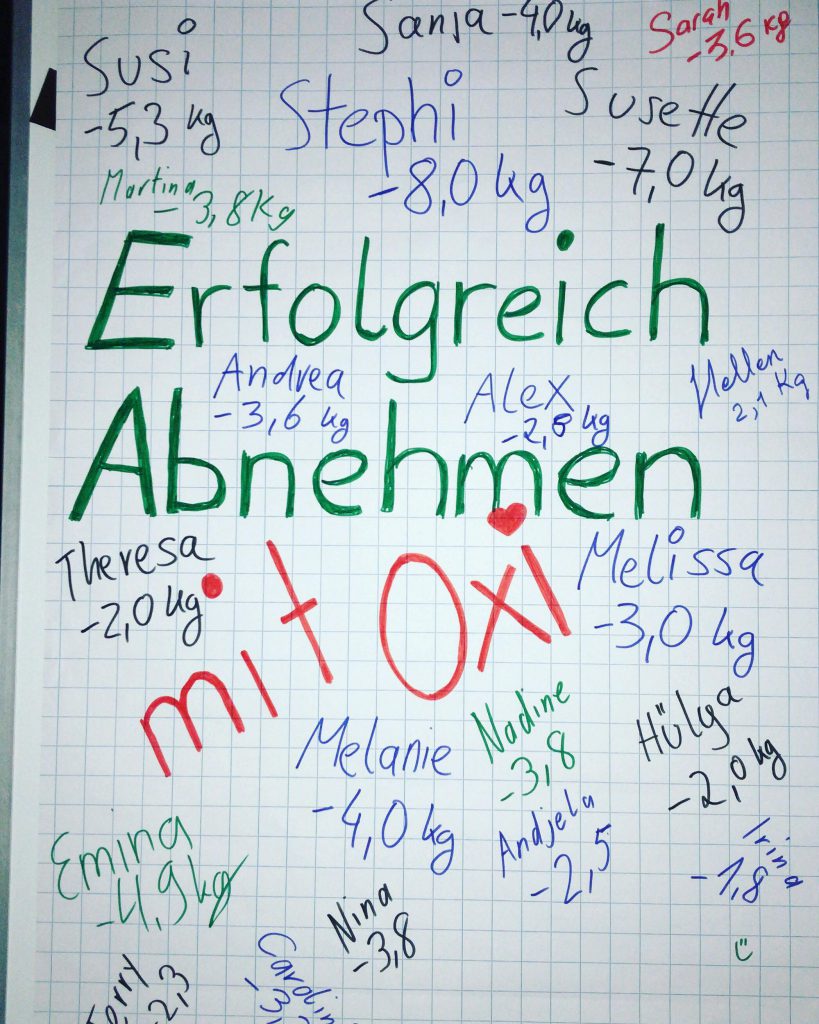 Sanja -4,0 kg
Sarah
-3,6 kg
Susi
-5,3 kg
Stephi
-8,0 kg
Susette
-7,0 kg
Martina
- 3,8 Kg
Erfolgreich
Andrea
-3,6 kg
Alex
kg
Hellen
2,1 Kg
Abnehmen
Theresa
-2,0 kg
mit Oxi
Melissa
-3,0 kg
Melanie
-4,0 kg
Nadine
-3,8
Hülya
-2,0 kg
Andjela
-2,5
Irina
-1,8
Emina
-4,9 kg
Nina
-3,8